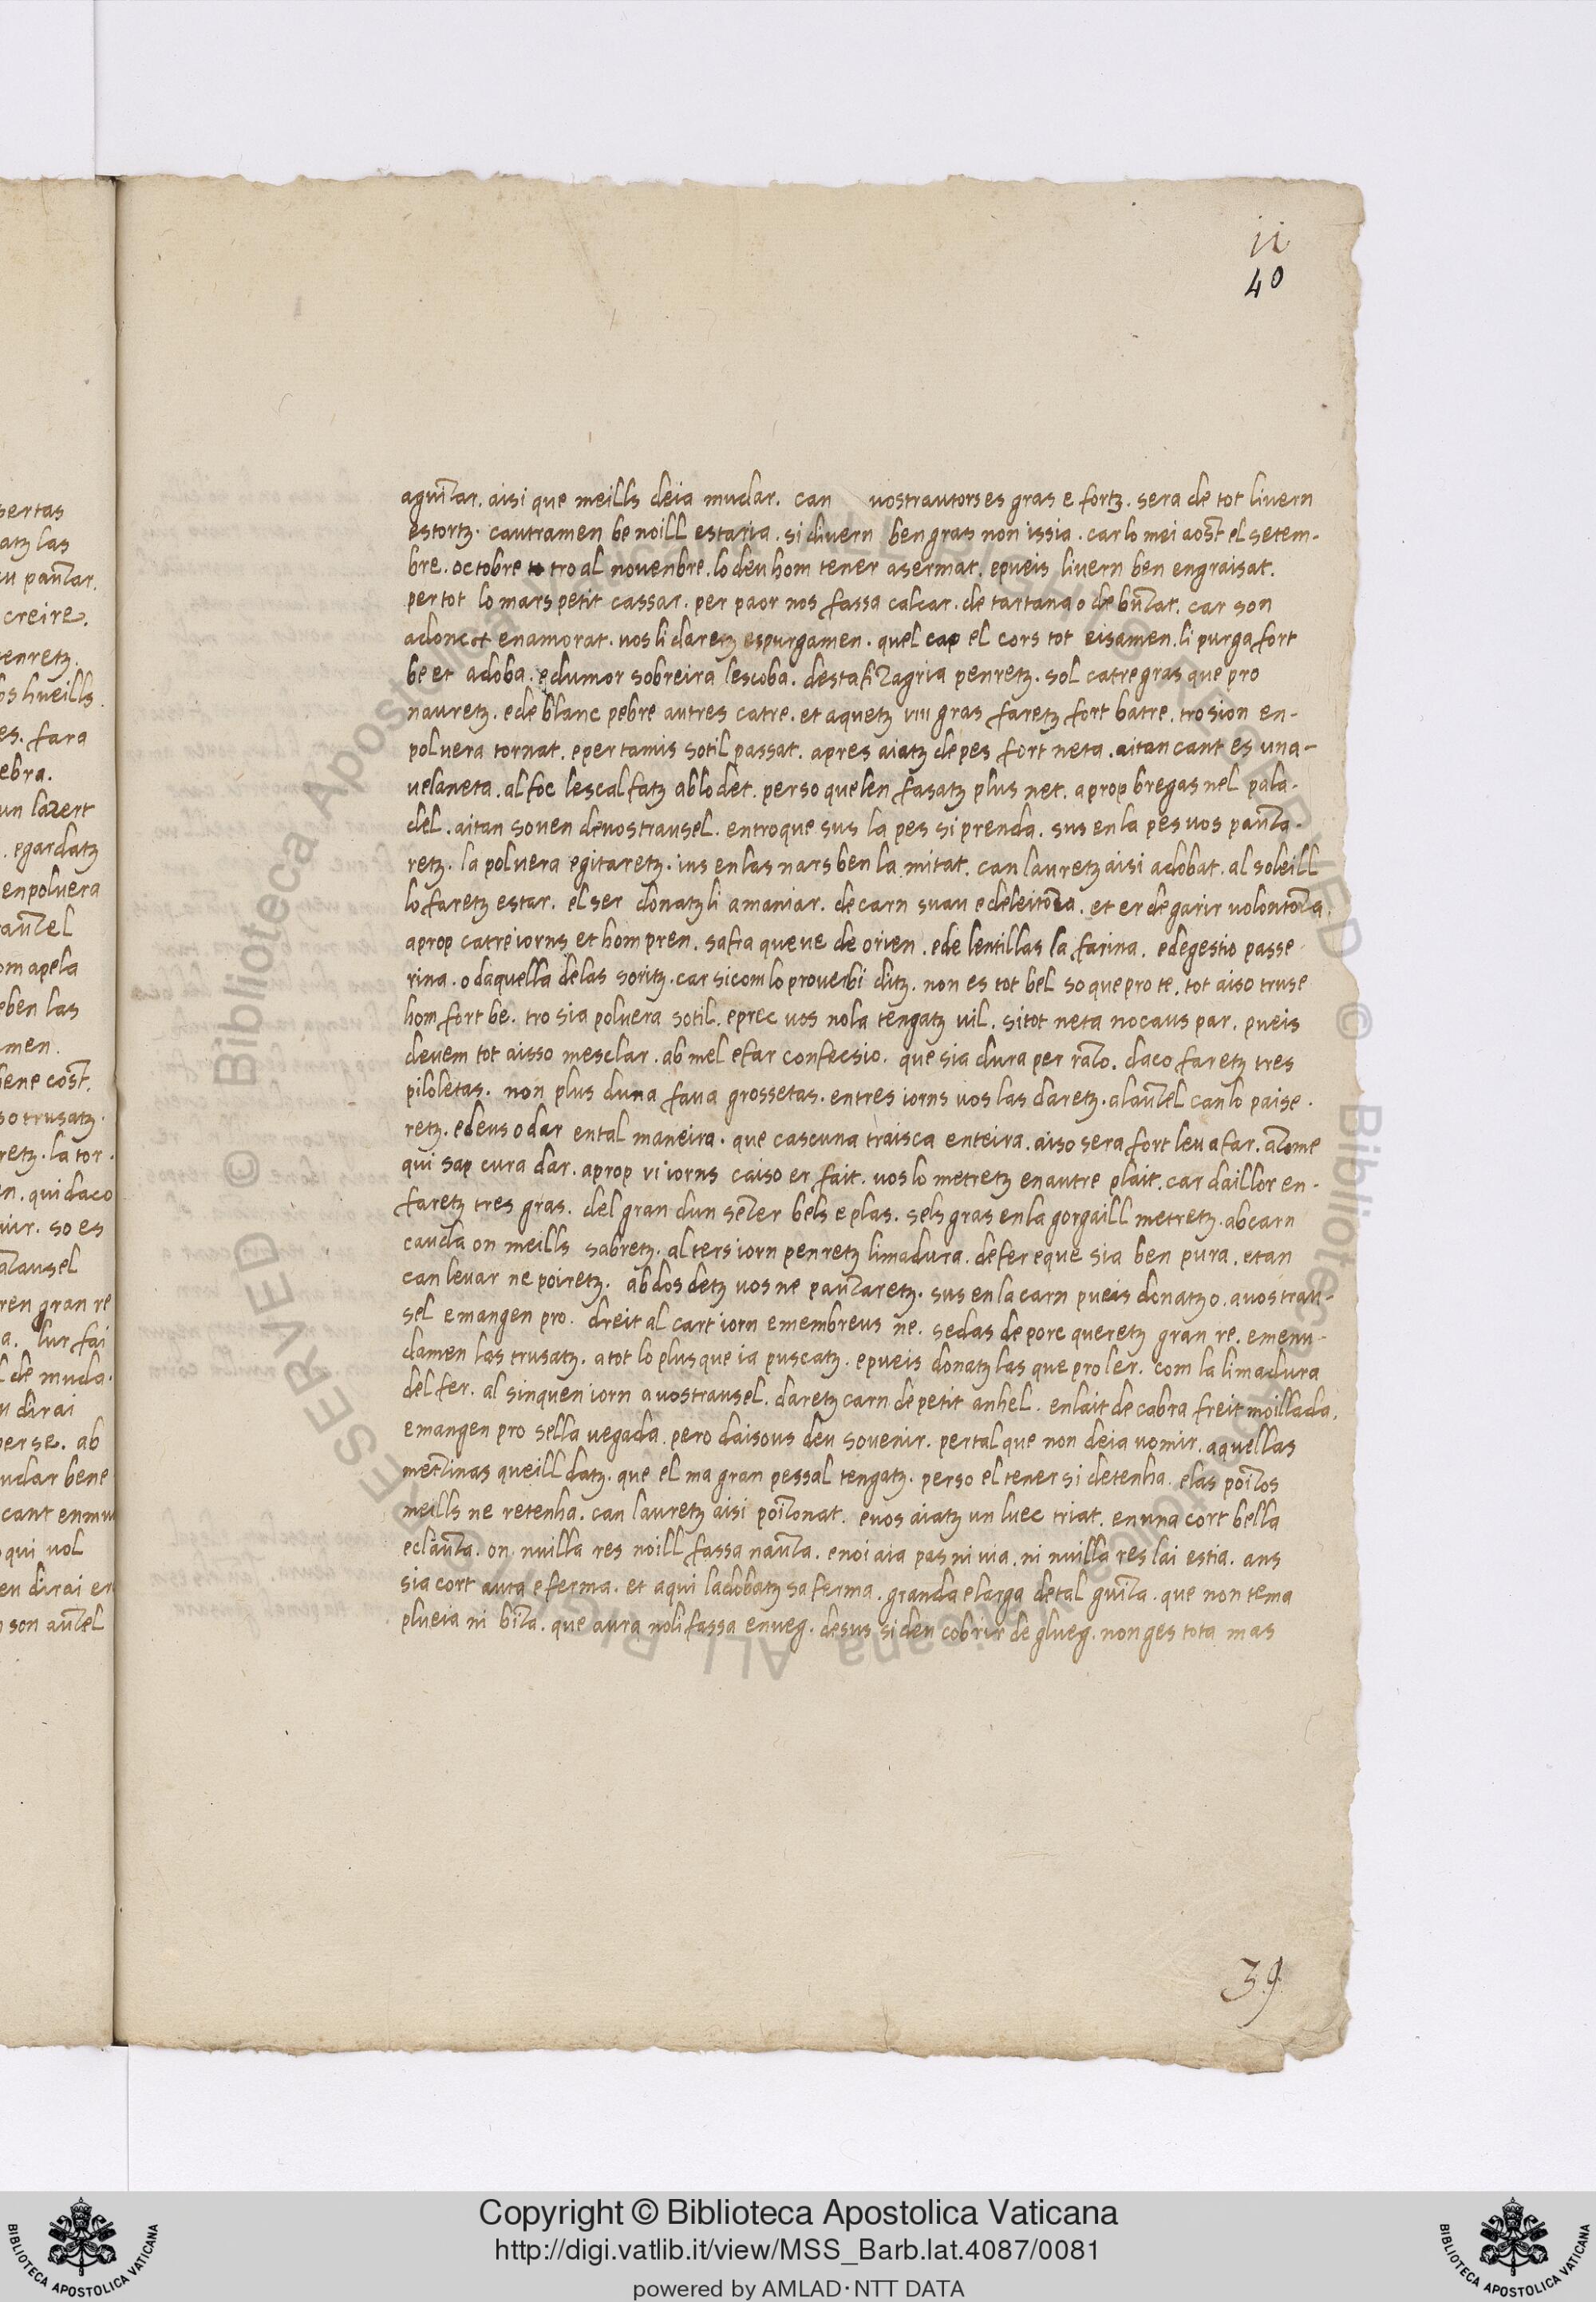 ii
40
aguizar. aisi que meills deia mudar. can vostrautors es gras e fortz. sera de tot livern
estortz. cautramen be noill estaria. si divern ben gras non issia. car lo mei aost el setem-
bre. octobre tro al novenbre. lo deu hom tener asermat. epueis livern ben engraisat.
per tot lo mars petit cassar. per paor nos fassa calcar. de tartana o de buzat. car son
adonc enamorat. vos li daretz espurgamen. quel cap el cors tot eisamen. li purga fort
be et adoba. edumor sobreira lescoba. destafizagria penretz. sol catre gras que pro
nauretz. e de blanc pebre autres catre. et aquetz viii gras faretz fort batre. tro sion en-
polvera tornat. e per tamis sotil passat. apres aiatz de pes fort neta. aitan cant es una-
velaneta. al foc lescalfatz ab lo det. per so quelen fasatz plus net. aprop bregas nel pala-
del. aitan soven de vostrausel. entro que sus la pes si prenda. sus en la pes vos pauza-
retz. la polvera egitaretz. ins en las nars ben la mitat. can lauretz aisi adobat. al soleill
lo faretz estar. el ser donatz li a maniar. de carn suau e deleitoza. et er de garir volontoza.
aprop catre iorns et hom pren. safra que ve de orien. e de lentillas la farina. e degestio passe-
rina. o daquella de las soritz. car si com lo proverbi ditz. non es tot bel so que pro te. tot aiso truse
hom fort be. tro sia polvera sotil. e prec vos nola tengatz vil. si tot neta nocaus par. pueis
devem tot aisso mesclar. ab mel efar confecsio. que sia dura per razo. daco faretz tres
piloletas. non plus duna fava grossetas. en tres iorns vos las daretz. alauzel can lo paise-
retz. e deus o dar en tal maneira. que cascuna traisca enteira. aiso sera fort leu a far. azome
qui sap cura dar. aprop vi iorns caiso er fait. vos lo metretz en autre plait. car daillor en-
faretz tres gras. del gran dun sezer bels e plas. sels gras en la gorgaill metretz. ab carn
cauda on meills sabretz. al ters iorn penretz limadura. de fer e que sia ben pura. e tan
can levar ne poiretz. ab dos detz vos ne pauzaretz. sus en la carn pueis donatz o. a vostrau-
sel e mangen pro. dreit al cart iorn e membreus ne. sedas de porc queretz gran re. e menu-
damen las trusatz. a tot lo plus que ia puscatz. e pueis donatz las que proler. com la limadura
del fer. al sinquen iorn a vostrausel. daretz carn de petit anhel. en lait de cabra freit moillada.
e mangen pro sella vegada. pero daisous deu sovenir. per tal que non deia vomir. aquellas
mezinas queill datz. que el ma gran pessal tengatz. per so el tener si detenha. e las poizos
meills ne retenha. can lauretz aisi poizonat. e vos aiatz un luec triat. en una cort bella
e clauza. on nuilla res noill fassa nauza. e noi aia pas ni via. ni nuilla res lai estia. ans
sia cort auta e ferma. et aqui ladobatz sa ferma. granda e larga de tal guiza. que non tema
plueia ni biza. que aura noli fassa enueg. desus si deu cobrir de glueg. non ges tota mas
39
Copyright © Biblioteca Apostolica Vaticana
http://digi.vatlib.it/view/MSS_Barb.lat.4087/0081
powered by AMLAD·NTT DATA
BIBLIOTECA APOSTOLICA VATICANA
BIBLIOTECA APOSTOLICA VATICANA